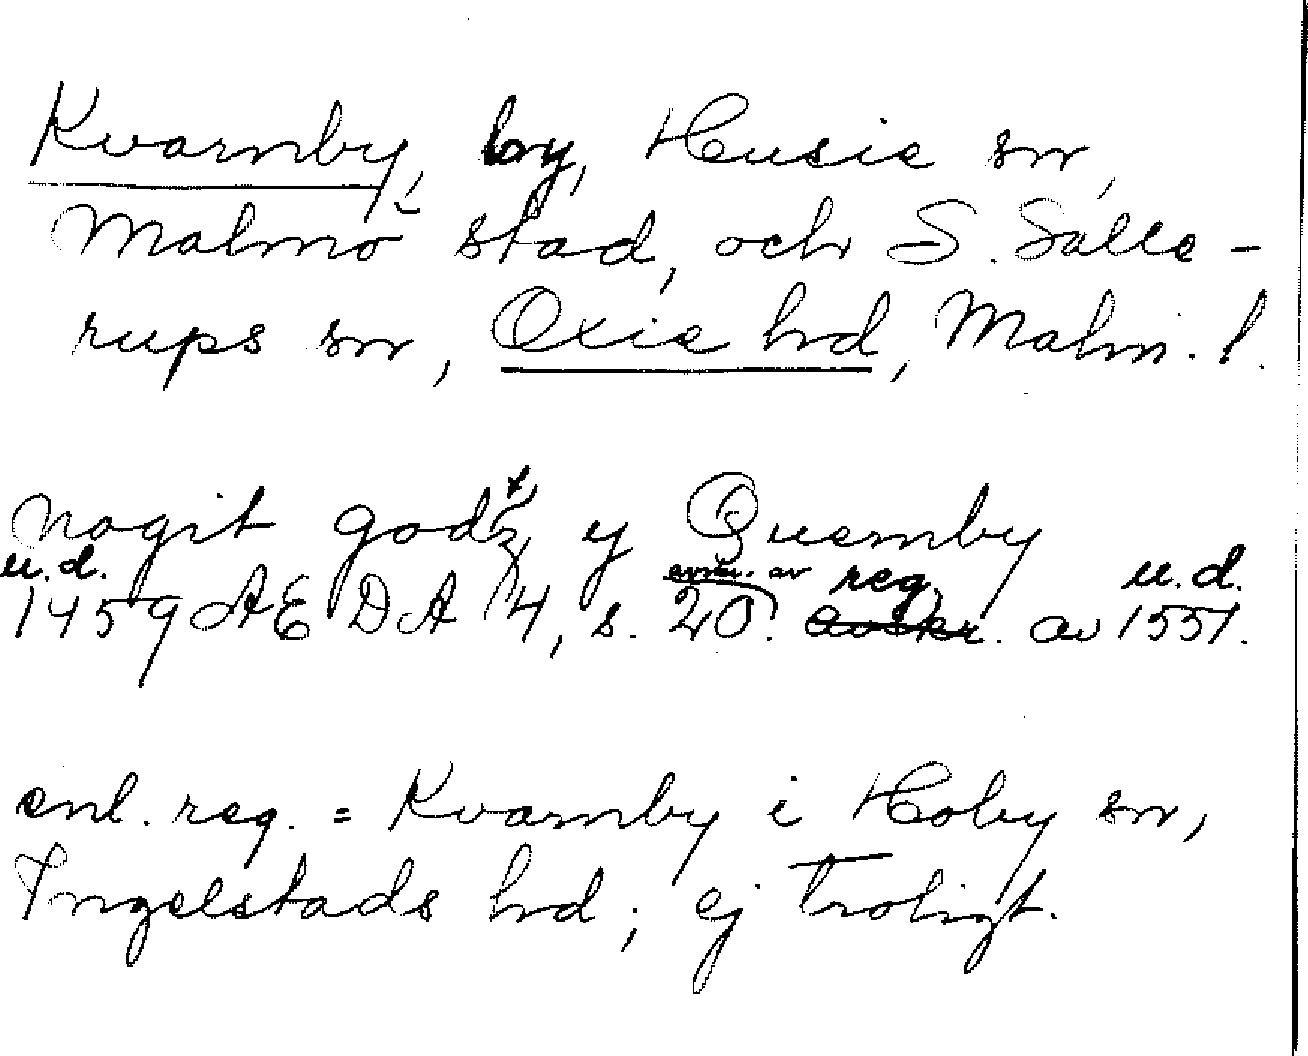 Kvarnby, by, Husie sn,
Malmö stad, och S. Sälle-
rups sn, Oxie hd, Malm. l.
nogit godz y Quernby
u.d. av reg u.d.
1459 ÆDA 4, s. 20. avskr. av 1551.
enl. reg. = Kvarnby i Hoby sn,
Ingelstads hd; ej troligt.